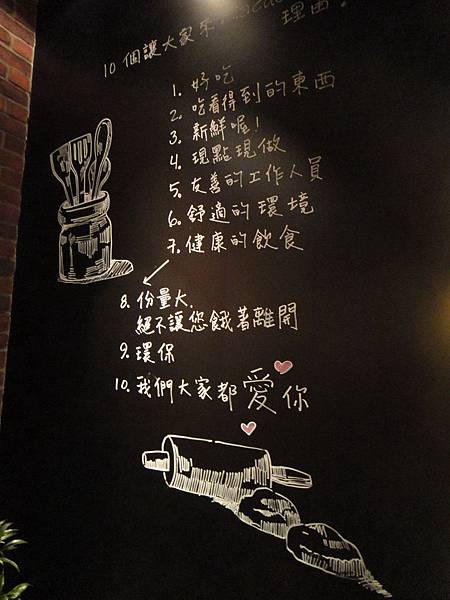 10 個讓大家來
理由!
1. 好吃
2. 吃看得到的東西
3. 新鮮喔!
4. 現點現做
5. 友善的工作人員
6. 舒適的環境
7. 健康的飲食
8. 份量大,
絕不讓您餓著離開
9. 環保
10. 我們大家都愛你